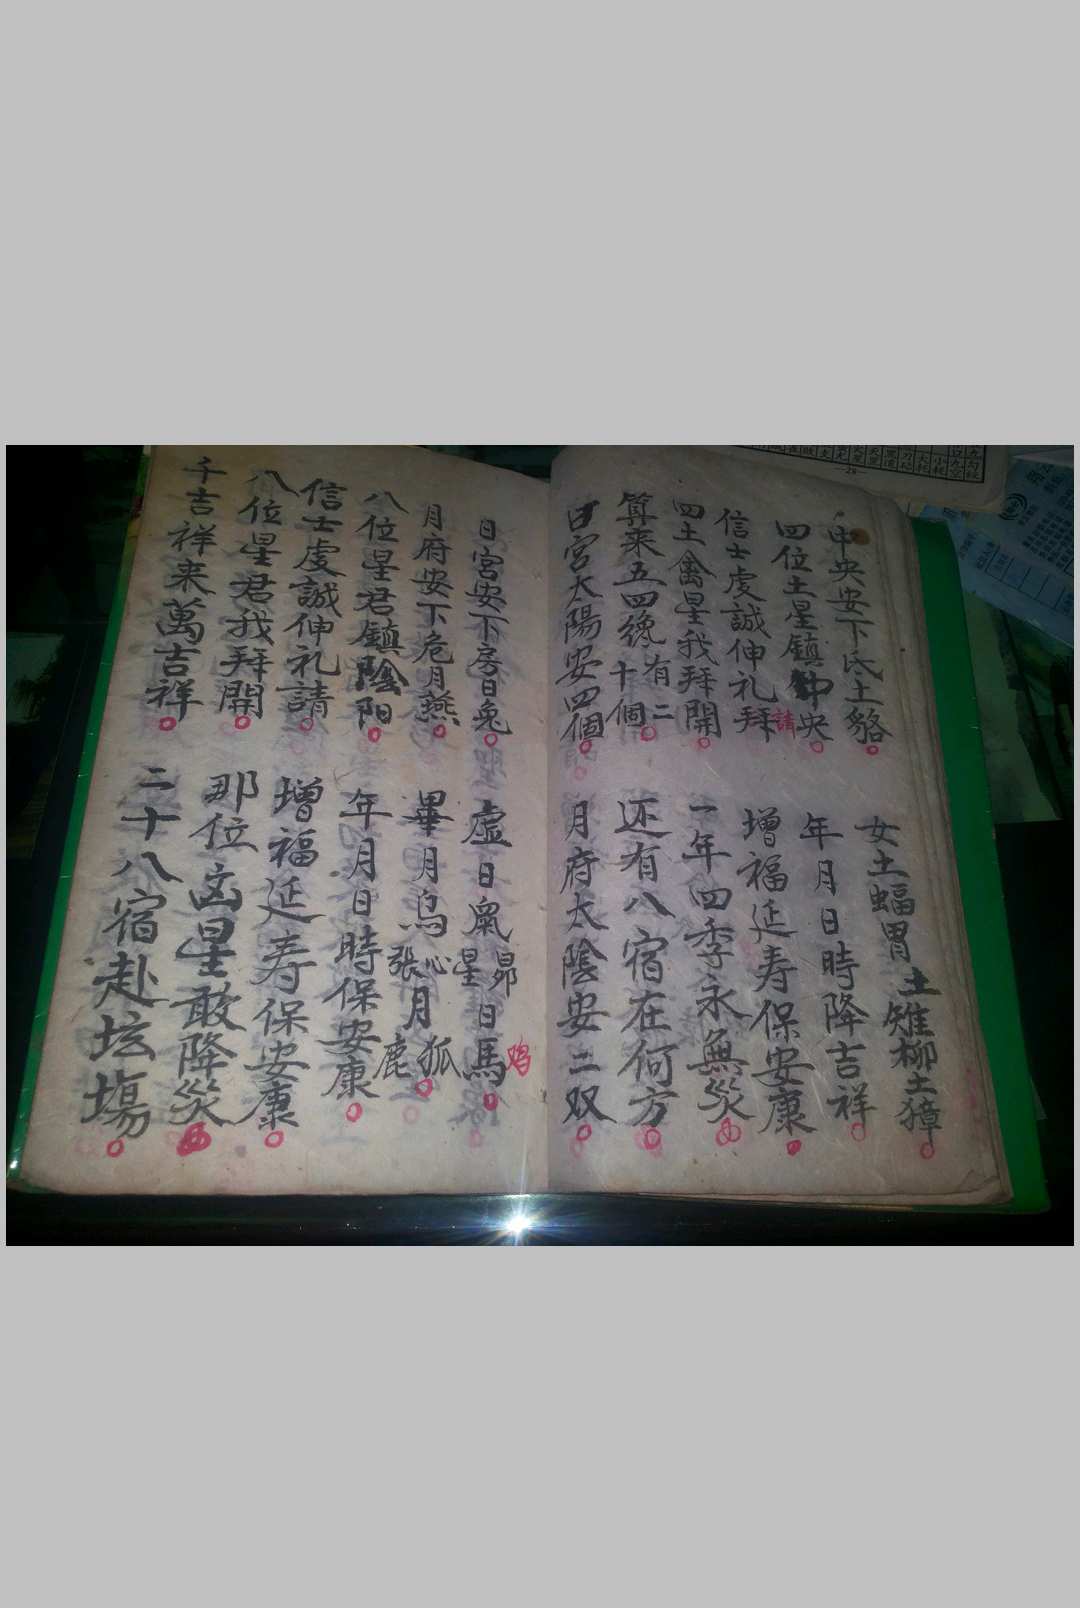 中央安下氐土貉 女土蝠胃土雉柳土獐
四位土星鎮中央 年月日時降吉祥
信士虔誠伸礼拜請 增福延寿保安康
四土禽星我拜開 一年四季永無災
算来五四纔有二十個 还有八宿在何方
日宮太陽安四個 月府太陰安二双
日宮安下房日兔 虚日鼠昴星日馬鸡
月府安下危月燕 畢月烏心張月狐鹿
八位星君鎮陰阳 年月日時保安康
信士虔誠伸礼請 增福延寿保安康
八位星君我拜開 那位凶星敢降災
千吉祥来萬吉祥 二十八宿赴坛場